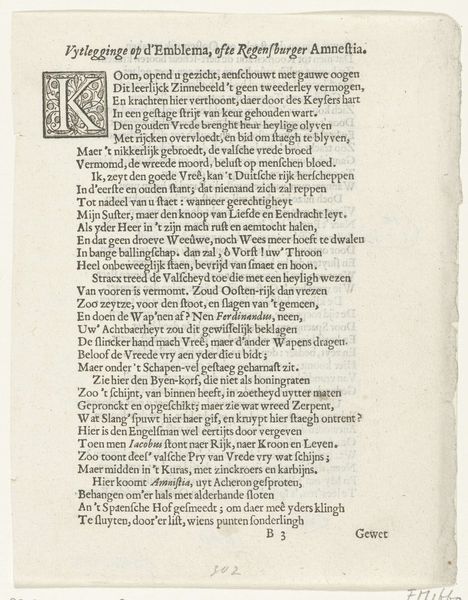 Vytlegginge op d'Emblema, ofte Regensburger Amnestia.
KOom, opend u gezicht, aenschouwt met gauwe oogen
Dit leerlijck Zinnebeeld 't geen tweederley vermogen,
En krachten hier verthoont, daer door des Keysers hart
In een gestage strijt van keur gehouden wart.
Den gouden Vrede brenght heur heylige olyven
Met rijcken overvloedt, en bid om staegh te blyven,
Maer 't nikkerlijk gebroedt, de valsche vrede broed
Vermomd, de wreede moord, belust op menschen bloed.
Ik, zeyt den goede Vreê, kan 't Duitsche rijk herscheppen
In d'eerste en ouden stant; dat niemand zich zal reppen
Tot nadeel van u staet: wanneer gerechtigheyt
Mijn Suster, maer den knoop van Liefde en Eendracht leyt.
Als yder Heer in 't zijn mach rust en aemtocht halen,
En dat geen droeve Weeûwe, noch Wees meer hoeft te dwalen
In bange ballingschap. dan zal, ô Vorst! uw' Throon
Heel onbeweeglijk staen, bevrijd van smaet en hoon.
Stracx treed de Valscheyd toe die met een heyligh wezen
Van vooren is vermomt. Zoud Oosten-rijk dan vrezen
Zoo zeytze, voor den stoot, en slagen van 't gemeen,
En doen de Wap'nen af? Nen Ferdinandus, neen,
Uw' Achtbaerheyt zou dit gewisselijk beklagen
De slincker hand mach Vreê, maer d'ander Wapens dragen.
Beloof de Vreede vry aen yder die u bidt;
Maer onder 't Schapen-vel gestaeg geharnast zit.
Zie hier den Byen-korf, die niet als honingraten
Zoo 't schijnt, van binnen heeft, in zoetheyd uytter maten
Gepronckt en opgeschikt; maer zie wat wreed Zerpent,
Wat Slang' spuwt hier haer gif, en kruypt hier staegh ontrent?
Hier is den Engelsman wel eertijts door vergeven
Toen men Iacobus stont naer Rijk, naer Kroon en Leven.
Zoo toont dees' valsche Pry van Vrede vry wat schijns;
Maer midden in 't Kuras, met zinckroers en karbijns.
Hier koomt Amnistia, uyt Acheron gesproten,
Behangen om'er hals met alderhande sloten
An 't Spaensche Hof gesmeedt; om daer meê yders klingh
Te sluyten, door'er list, wiens punten sonderlingh
B 3 Gewet
302